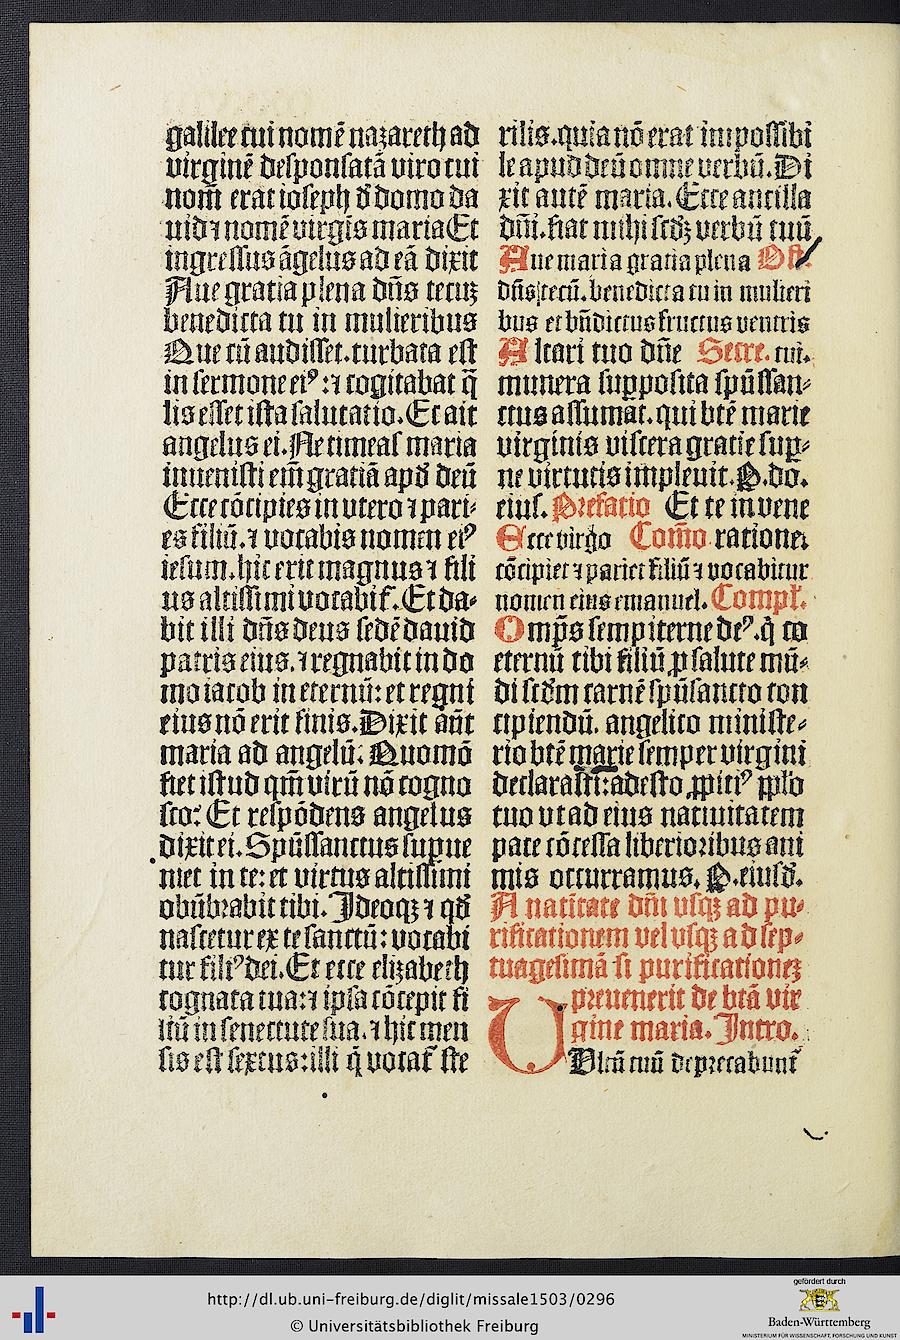 galilee cui nomē nazareth ad
virginē desponsatā viro cui
nom̄ erat ioseph đ domo da
uid ⁊ nomē virgīs maria Et
ingressus āgelus ad eā dixit
Aue gratia plena dn̄s tecuꝫ
benedicta tu in mulieribus
Que cū audisset. turbata est
in sermone eiꝰ: ⁊ cogitabat q̄
lis esset ista salutatio. Et ait
angelus ei. Ne timeas maria
inuenisti eīm gratiā apđ deū
Ecce cōcipies in vtero ⁊ pari⸗
es filiū. ⁊ vocabis nomen eiꝰ
iesum. hic erit magnus ⁊ fili
us altissimi vocabit᷑. Et da⸗
bit illi dn̄s deus sedē dauid
patris eius. ⁊ regnabit in do
mo iacob in eternū: et regni
eius nō erit finis. Dixit aūt
maria ad angelū: Quomō
fiet istud qm̄ virū nō cogno
sco: Et respōdens angelus
dixit ei. Spūssanctus supue
niet in te: et virtus altissimi
obūbrabit tibi. Ideoqꝫ ⁊ qđ
nascetur ex te sanctū: vocabi
tur filiꝰ dei. Et ecce elizabeth
cognata tua: ⁊ ipsa cōcepit fi
liū in senectute sua. ⁊ hic men
sis est sextus: illi q̄ vocat᷑ ste
rilis. quia nō erat impossibi
le apud deū omne verbū. Di
xit autē maria. Ecce ancilla
dn̄i. fiat mihi scđꝫ verbū tuū
Aue maria gratia plena Off.
dn̄s tecū. benedicta tu in mulieri
bus et bn̄dictus fructus ventris
Altari tuo dn̄e Secre. tui.
munera supposita spūssan⸗
ctus assumat. qui btē marie
virginis viscera gratie sup⸗
ne virtutis impleuit. P. do.
eius. Prefatio Et te in vene
Ecce virgo Com̄o. rationeꝫ
cōcipiet ⁊ pariet filiū ⁊ vocabitur
nomen eius emanuel. Compl̄.
Omp̄s sempiterne deꝰ. q̇ co
eternū tibi filiū ꝓ salute mū⸗
di scđm carnē spūsancto con
cipiendū. angelico ministe⸗
rio btē marie semper virgini
declarasti: adesto ꝓpitiꝰ pp̄lo
tuo vt ad eius natiuitatem
pace cōcessa liberioribus ani
mis occurramus. P. eiusđ.
A natītate dn̄i vsqꝫ ad pu⸗
rificationem vel vsqꝫ ad sep⸗
tuagesimā si purificationeꝫ
preuenerit de btā vir
gine maria. Intro.
UUltū tuū deprecabunt᷑
http://dl.ub.uni-freiburg.de/diglit/missale1503/0296
© Universitätsbibliothek Freiburg
gefördert durch
Baden-Württemberg
MINISTERIUM FÜR WISSENSCHAFT, FORSCHUNG UND KUNST